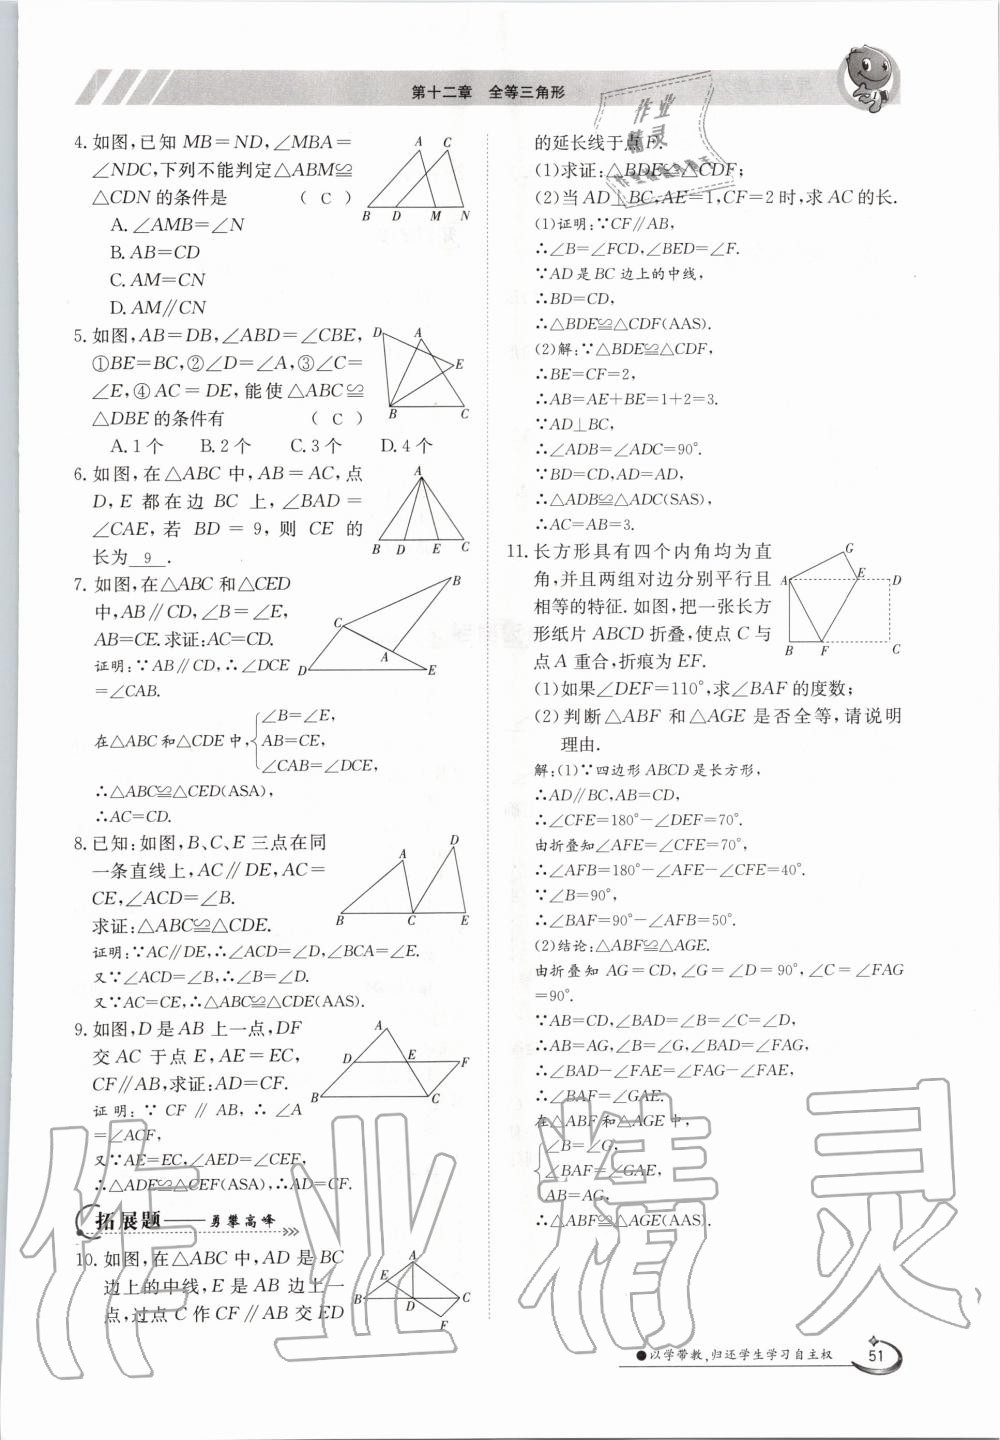 第十二章 全等三角形
4. 如图,已知 MB=ND,∠MBA=
∠NDC,下列不能判定△ABM≌
△CDN 的条件是 ( C )
A. ∠AMB=∠N
B. AB=CD
C. AM=CN
D. AM∥CN
A C
B D M N
5. 如图,AB=DB,∠ABD=∠CBE,
①BE=BC,②∠D=∠A,③∠C=
∠E,④AC=DE,能使△ABC≌
△DBE 的条件有 ( C )
A. 1个 B. 2个 C. 3个 D. 4个
D A
E
B C
6. 如图,在△ABC 中,AB=AC,点
D,E 都在边 BC 上,∠BAD=
∠CAE,若 BD=9,则 CE 的
长为 9 .
A
B D E C
7. 如图,在△ABC 和△CED
中,AB∥CD,∠B=∠E,
AB=CE.求证:AC=CD.
证明:∵AB∥CD,∴∠DCE
=∠CAB.
B
C
A
D E
∠B=∠E,
在△ABC和△CDE中, AB=CE,
∠CAB=∠DCE,
∴△ABC≌△CED(ASA),
∴AC=CD.
8. 已知:如图,B、C、E 三点在同
一条直线上,AC∥DE,AC=
CE,∠ACD=∠B.
求证:△ABC≌△CDE.
D
A
B C E
证明:∵AC∥DE,∴∠ACD=∠D,∠BCA=∠E.
又∵∠ACD=∠B,∴∠B=∠D.
又∵AC=CE,∴△ABC≌△CDE(AAS).
9. 如图,D 是 AB 上一点,DF
交 AC 于点 E,AE=EC,
CF∥AB,求证:AD=CF.
证明:∵CF∥AB,∴∠A
=∠ACF,
又∵AE=EC,∠AED=∠CEF,
∴△ADE≌△CEF(ASA),∴AD=CF.
A
D E F
B C
拓展题——勇攀高峰
10. 如图,在△ABC 中,AD 是 BC
边上的中线,E 是 AB 边上一
点,过点 C 作 CF∥AB 交 ED
A
E
B D C
F
的延长线于点 F.
(1)求证:△BDE≌△CDF;
(2)当 AD⊥BC,AE=1,CF=2 时,求 AC 的长.
(1)证明:∵CF∥AB,
∴∠B=∠FCD,∠BED=∠F.
∵AD 是 BC 边上的中线,
∴BD=CD,
∴△BDE≌△CDF(AAS).
(2)解:∵△BDE≌△CDF,
∴BE=CF=2,
∴AB=AE+BE=1+2=3.
∵AD⊥BC,
∴∠ADB=∠ADC=90°.
∵BD=CD,AD=AD,
∴△ADB≌△ADC(SAS),
∴AC=AB=3.
11. 长方形具有四个内角均为直
角,并且两组对边分别平行且
相等的特征. 如图,把一张长方
形纸片 ABCD 折叠,使点 C 与
点 A 重合,折痕为 EF.
G
A E D
B F C
(1)如果∠DEF=110°,求∠BAF 的度数;
(2)判断△ABF 和△AGE 是否全等,请说明
理由.
解:(1)∵四边形 ABCD 是长方形,
∴AD∥BC,AB=CD,
∴∠CFE=180°-∠DEF=70°.
由折叠知∠AFE=∠CFE=70°,
∴∠AFB=180°-∠AFE-∠CFE=40°.
∵∠B=90°,
∴∠BAF=90°-∠AFB=50°.
(2)结论:△ABF≌△AGE.
由折叠知 AG=CD,∠G=∠D=90°,∠C=∠FAG
=90°.
∵AB=CD,∠BAD=∠B=∠C=∠D,
∴AB=AG,∠B=∠G,∠BAD=∠FAG,
∴∠BAD-∠FAE=∠FAG-∠FAE,
∴∠BAF=∠GAE.
在△ABF和△AGE中,
∠B=∠G,
∠BAF=∠GAE,
AB=AG,
∴△ABF≌△AGE(AAS).
●以学带教,归还学生学习自主权
51
作业精灵
作业
精灵